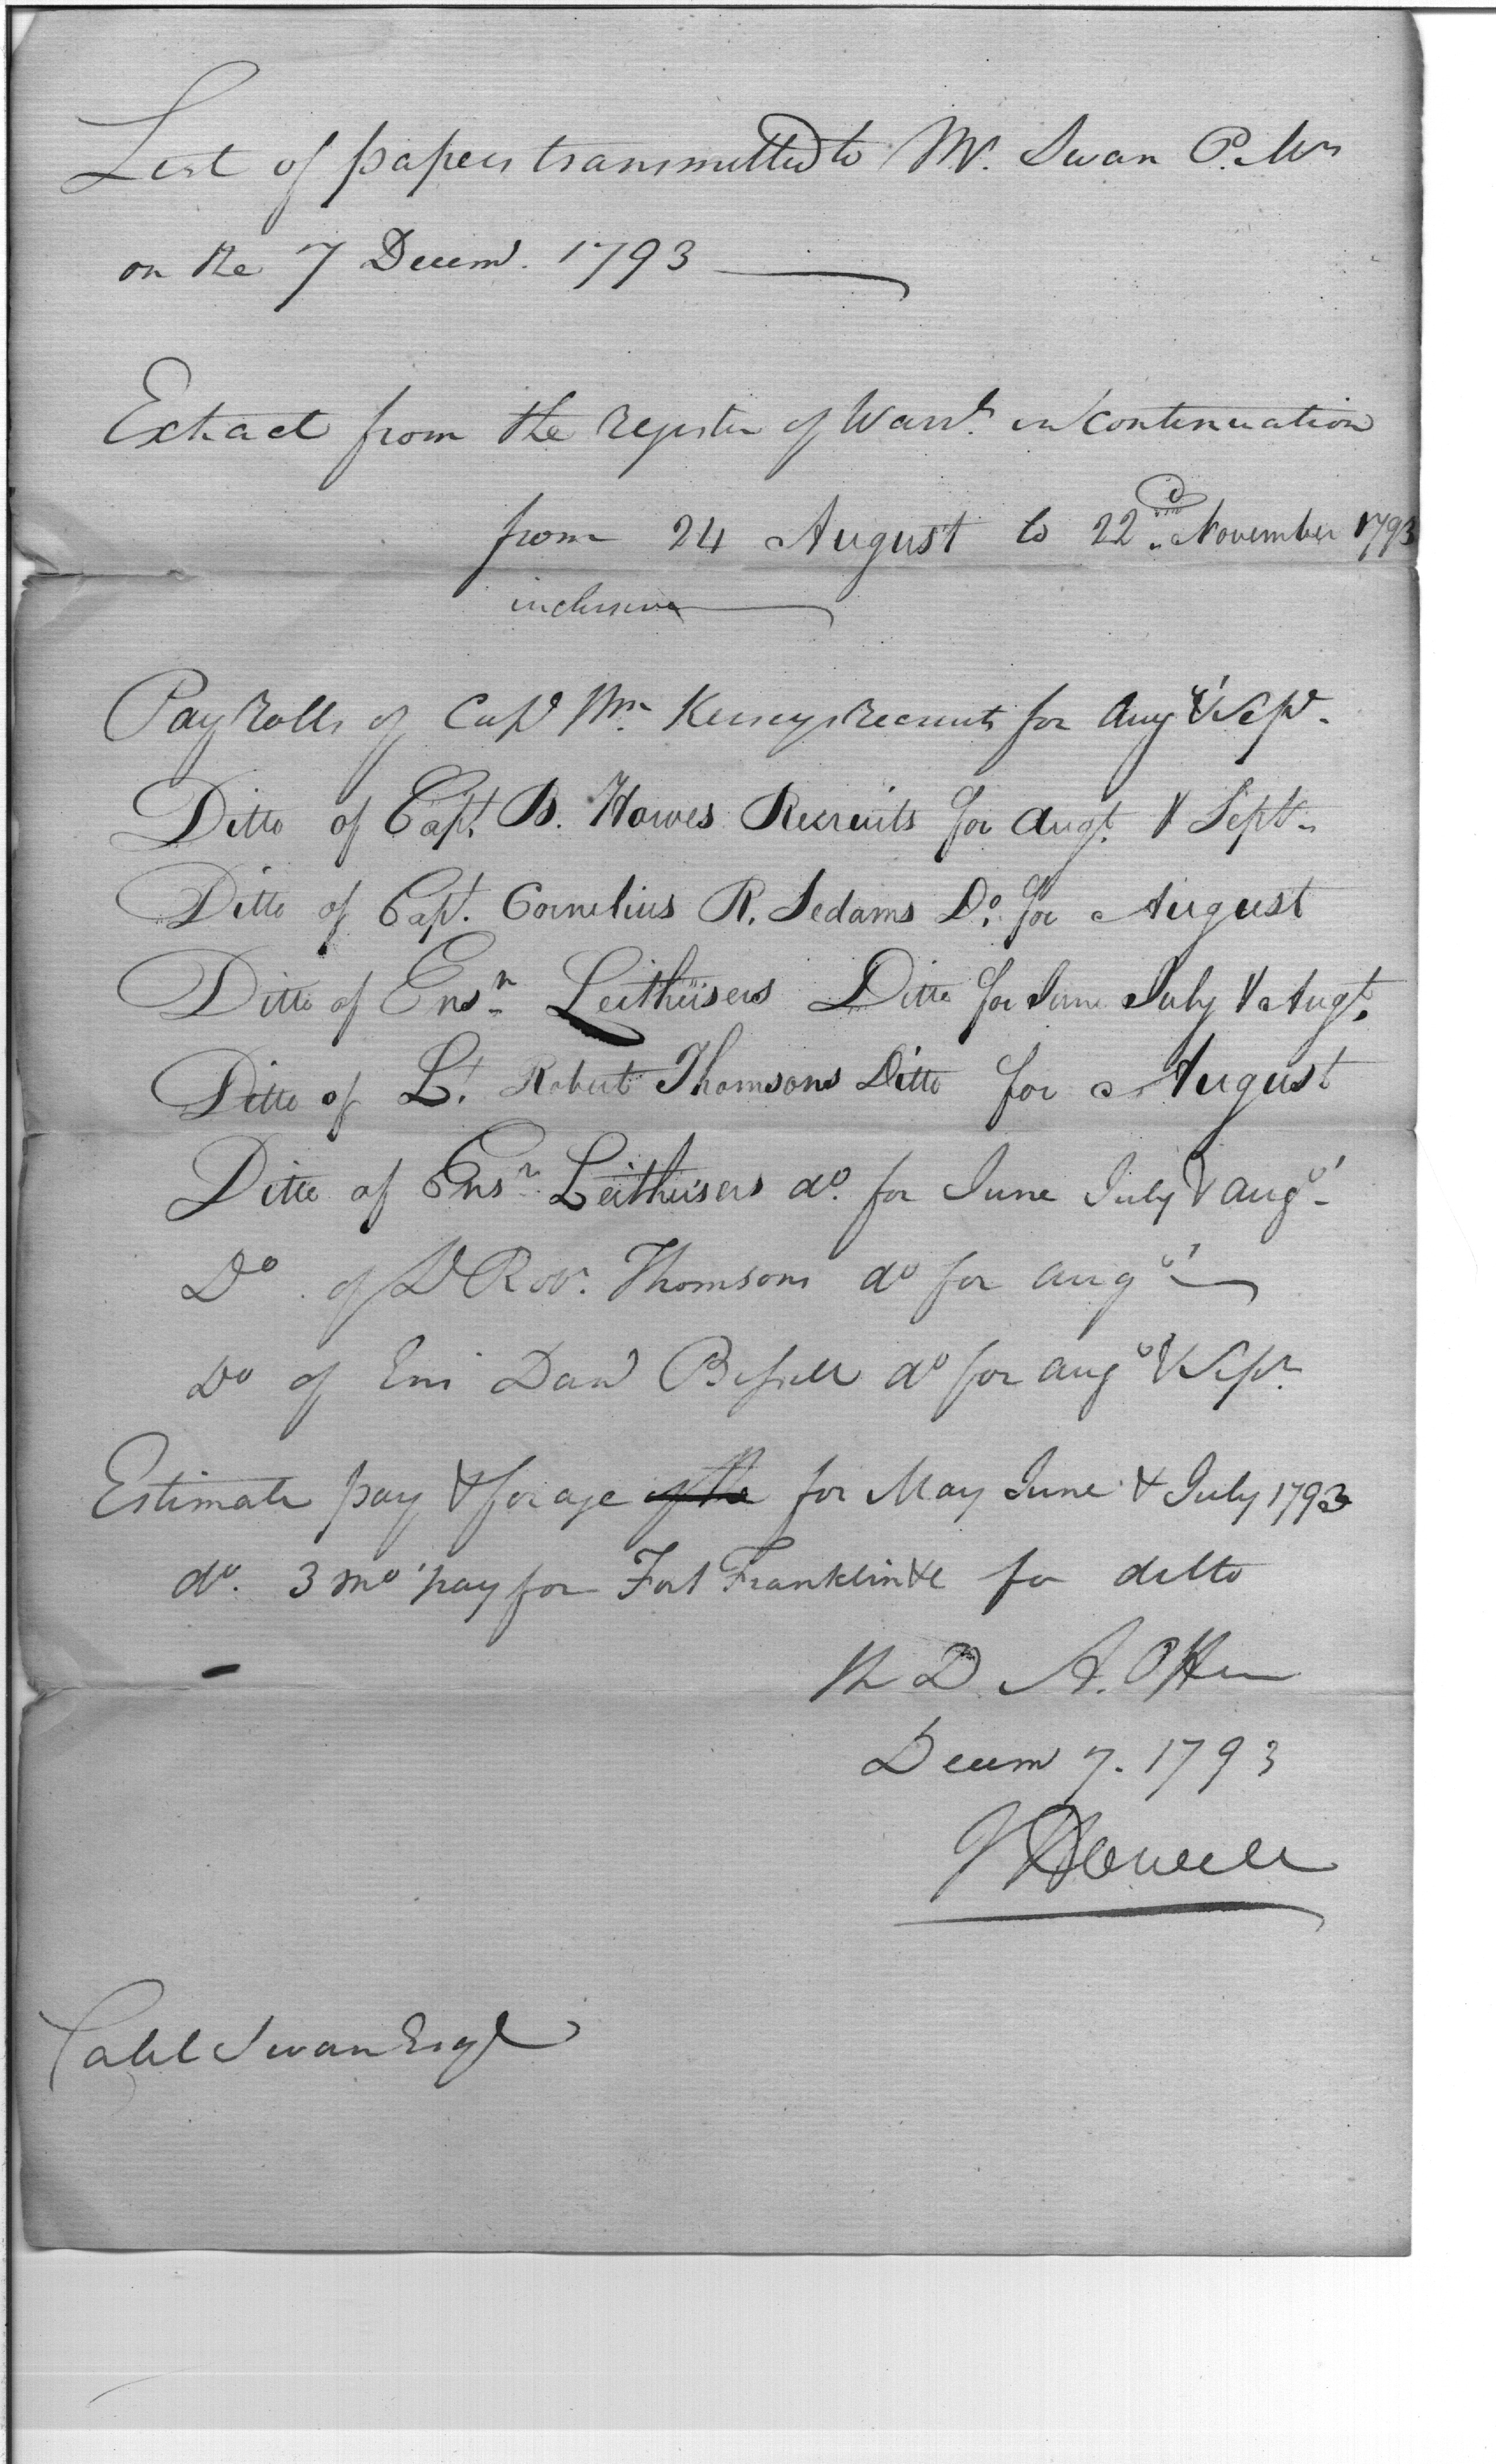 List of papers transmitted to Mr. Swan P. Mr
on the 7 Decemr. 1793
Extract from the register of Warrts. in Continuation
from 24 August to 22d. November 1793
inclusive
Pay Rolls of Capt Wm. Kerseys Recruits for Augt & Sepr.
Ditto of Capt. B. Howes Recruits for Augt. & Sept.
Ditto of Capt. Cornelius R. Sedams Do. for August
Ditto of Ensn. Leithuisers Ditto for June July & Augt.
Ditto of Lt. Robert Thomsons Ditto for August
Ditto of Ensn. Leithuisers do. for June July & Augt.
Do of Lt Robt. Thomsons do for Augt
Do of Ens Danl Bissell do for Augt & Sepr
Estimate pay & forage of the for May June & July 1793
do. 3 mo pay for Fort Franklin &c for ditto
W D A. Office
Decemr 7. 1793
J Howell
Caleb Swan Esqr